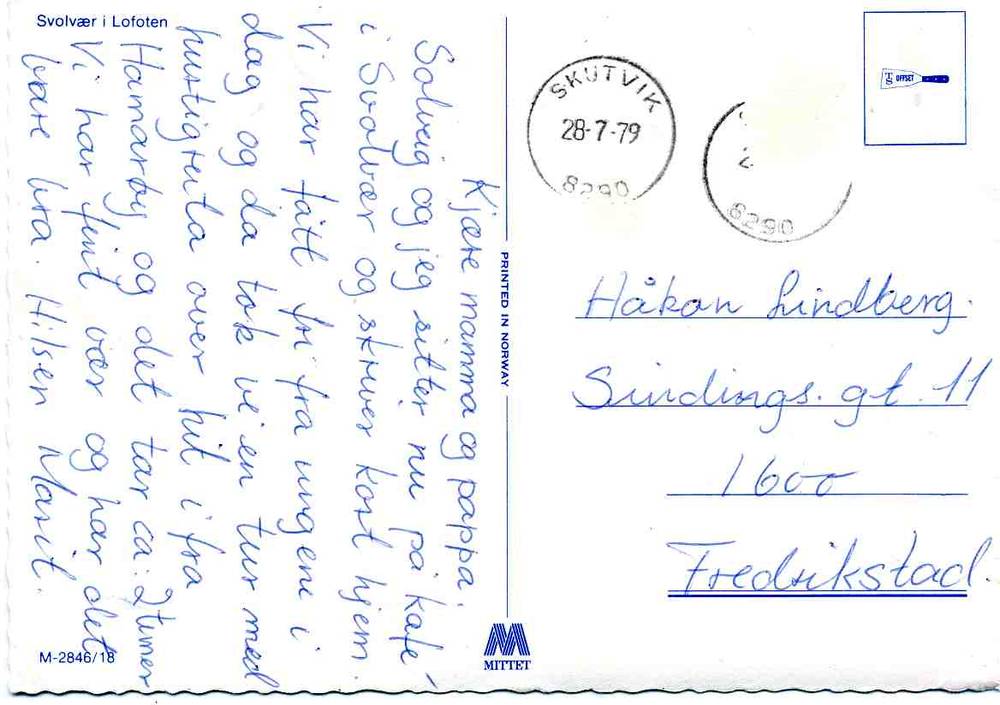 Svolvær i Lofoten
Kjære mamma og pappa.
Solveig og jeg sitter nu på kafé
i Svolvær og skriver kort hjem.
Vi har fått fri fra ungene i
dag og da tok vi en tur med
hurtigruta over hit i fra
Hamarøy og det tar ca: 2 timer
Vi har fint vær og har det
bare bra. Hilsen Marit.
M-2846/18
PRINTED IN NORWAY
MITTET
SKUTVIK
28-7-79
8290
8290
TS OFFSET
Håkon Lindberg.
Sindings. gt. 11
1600
Fredrikstad.